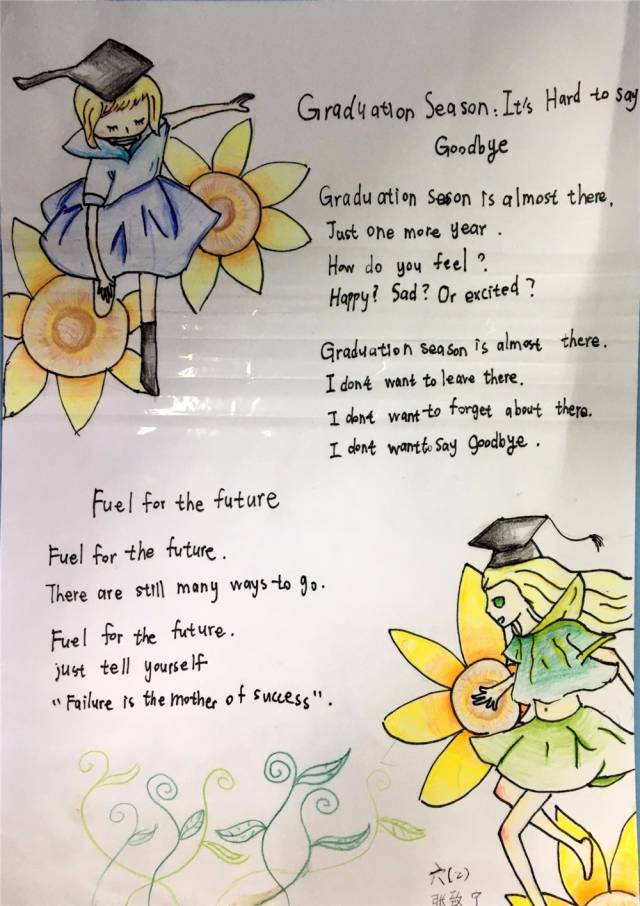 Graduation Season: It's Hard to say
Goodbye
Graduation Seson is almost there,
Just one more year.
How do you feel?
Happy? Sad? Or excited?
Graduation season is almost there.
I dont want to leave there.
I dont want to forget about there.
I dont want to say goodbye.
Fuel for the future
Fuel for the future.
There are still many ways to go.
Fuel for the future.
just tell yourself
"Failure is the mother of success".
六(2)
张致宁